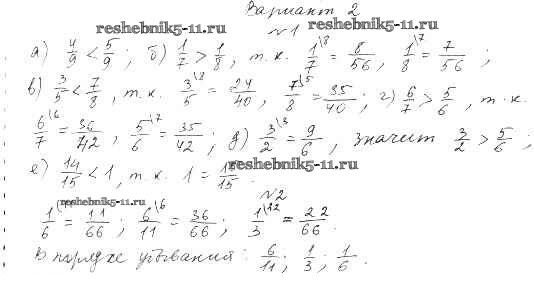 Вариант 2
reshebnik5-11.ru reshebnik5-11.ru
№1
а) 4/9 < 5/9; б) 1/7 > 1/8, т.к. 1/7 \8 = 8/56, 1/8 \7 = 7/56;
в) 3/5 < 7/8, т.к. 3/5 \8 = 24/40, 7/8 \5 = 35/40; г) 6/7 > 5/6, т.к.
6/7 \6 = 36/42, 5/6 \7 = 35/42; д) 3/2 \3 = 9/6, значит 3/2 > 5/6;
reshebnik5-11.ru
е) 14/15 < 1, т.к. 1 = 15/15.
№2
reshebnik5-11.ru
1/6 = 11/66; 6/11 \6 = 36/66; 1/3 \22 = 22/66.
В порядке убывания: 6/11; 1/3; 1/6.